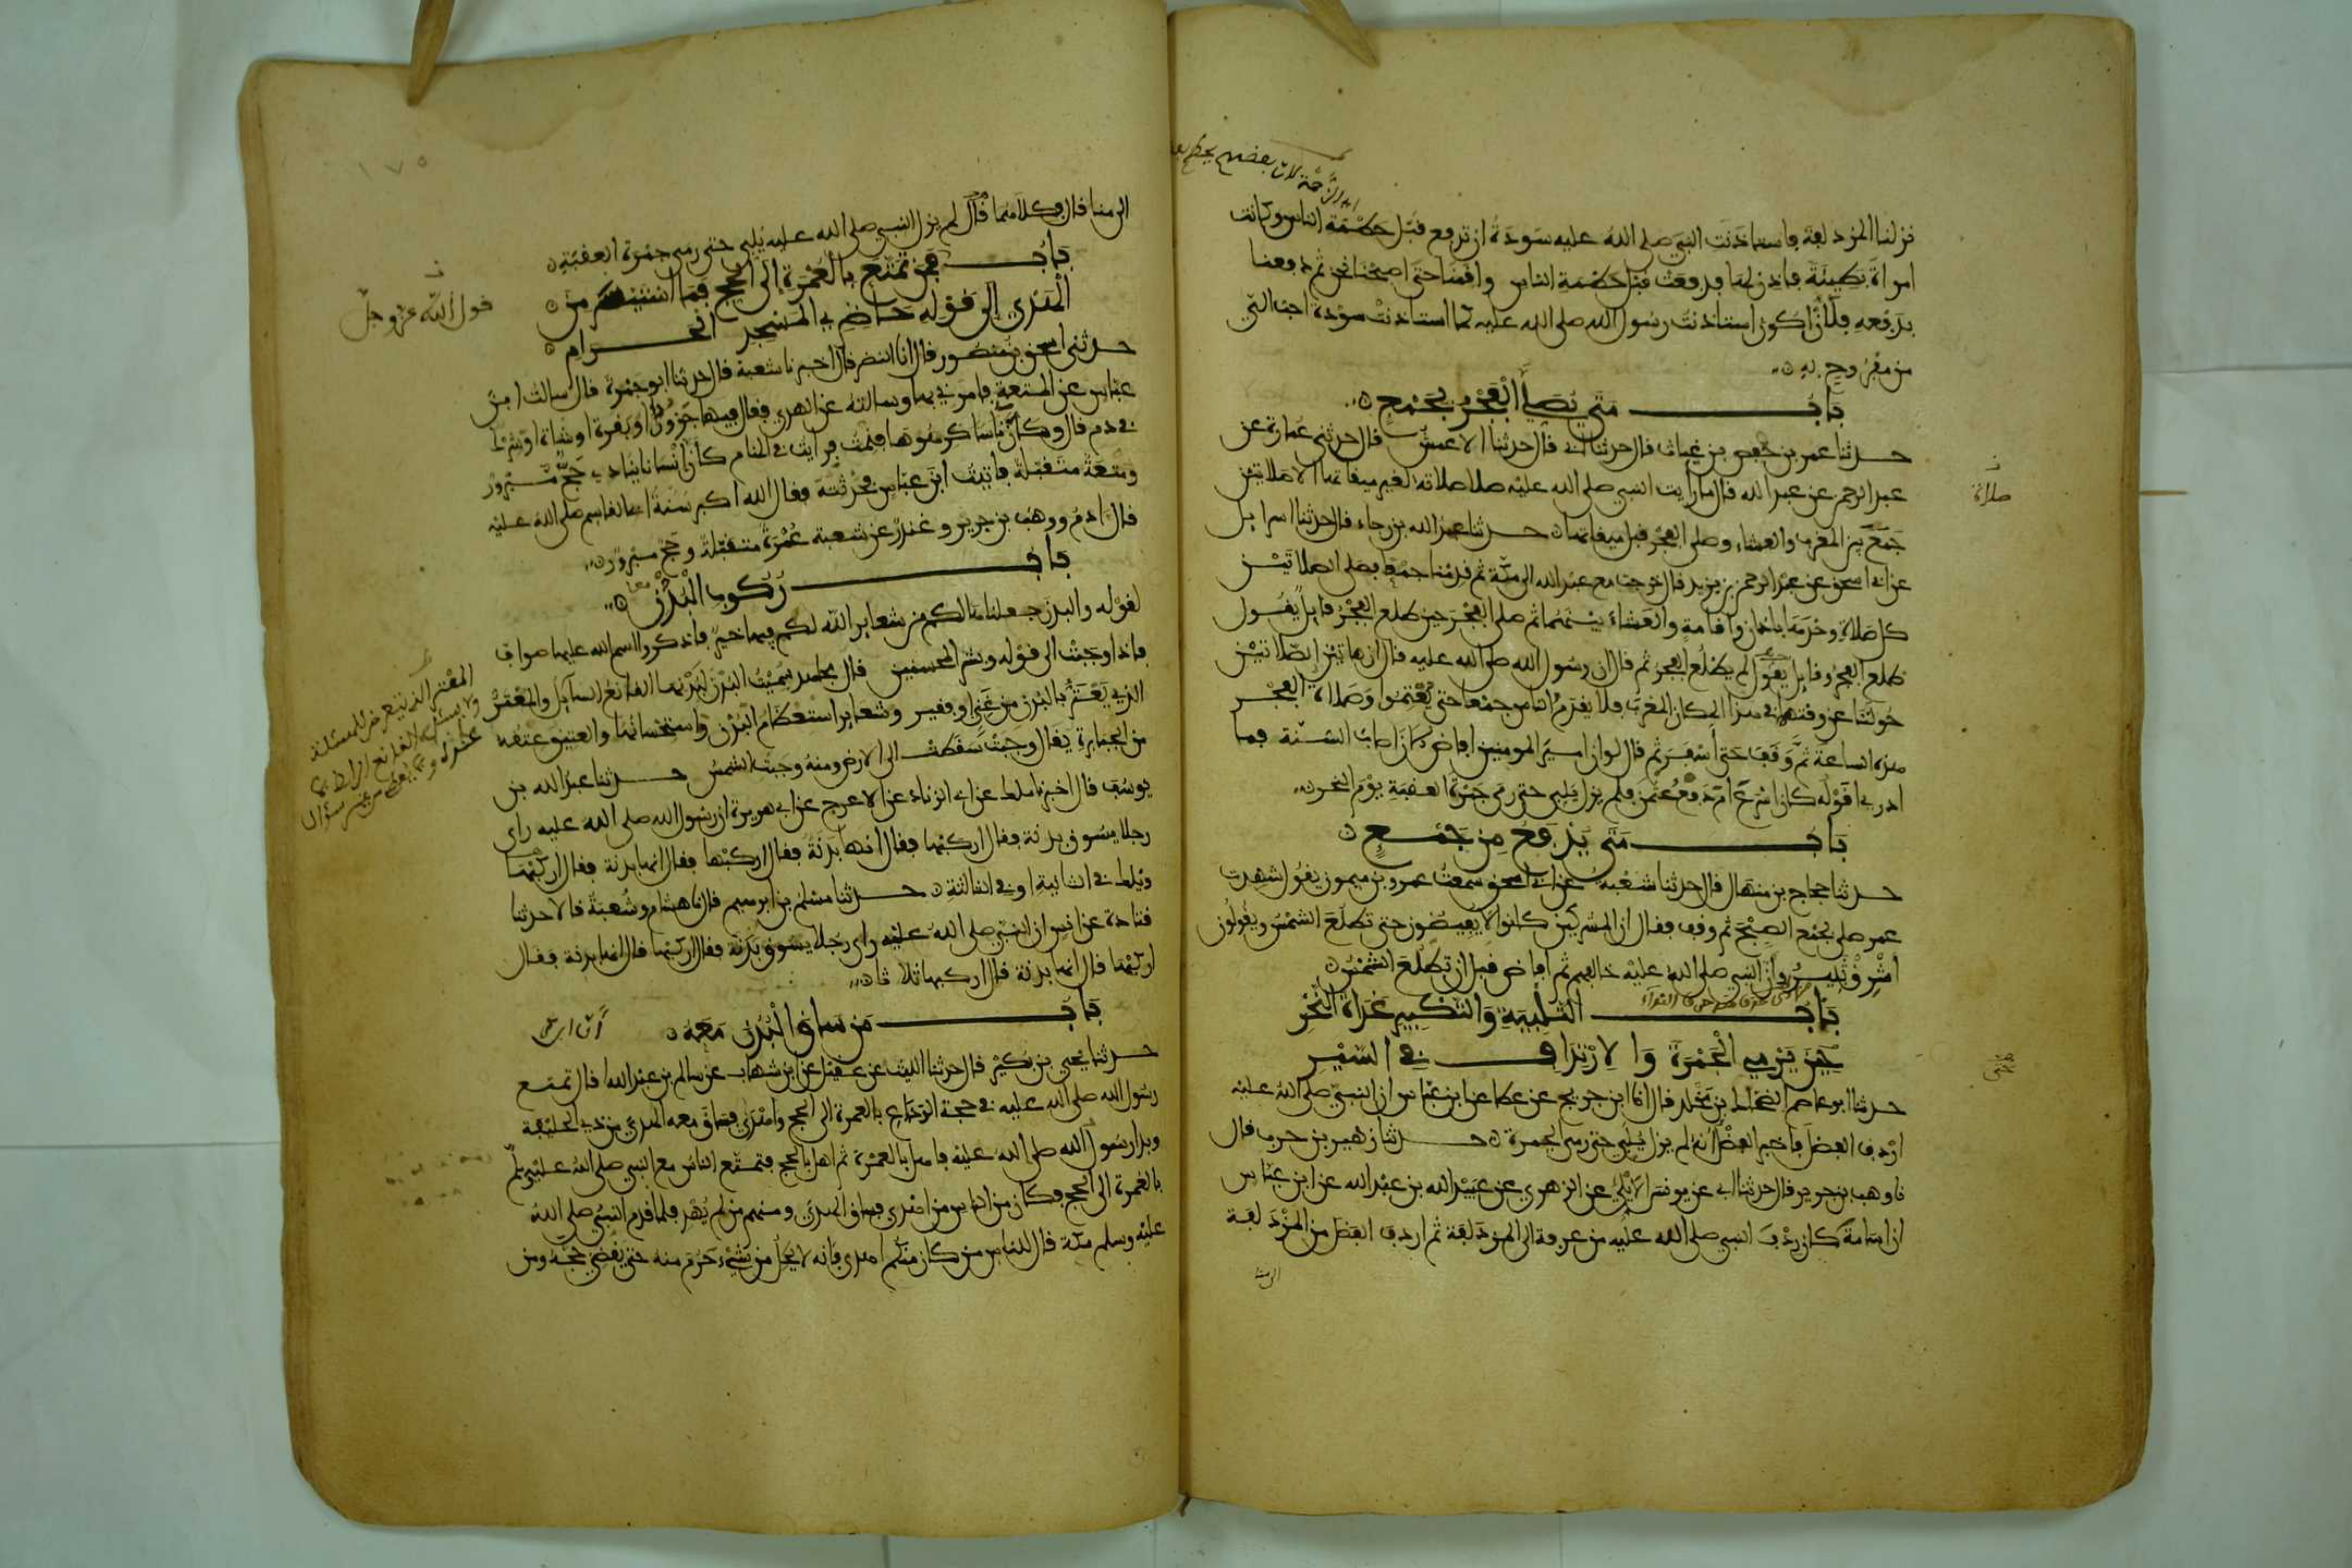 نزلنا المزدلفة فاستاذنت النبي صلى الله عليه سودة ان تدفع قبل حطمة الناس وكانت
امراة بطيئة فاذن لها فدفعت قبل حطمة الناس واقمنا حتى اصبحنا نحن ثم دفعنا
بدفعه فلأن اكون استاذنت رسول الله صلى الله عليه كما استاذنت سودة احب الي
من مفروح به
باب متى يصلي الفجر بجمع
حدثنا عمر بن حفص بن غياث قال حدثنا ابي قال حدثنا الاعمش قال حدثني عمارة عن
عبد الرحمن عن عبد الله قال ما رايت النبي صلى الله عليه صلا صلاة لغير ميقاتها الا صلاتين
جمع بين المغرب والعشاء وصلى الفجر قبل ميقاتها حدثنا عبد الله بن رجاء قال حدثنا اسرايل
عن ابي اسحق عن عبد الرحمن بن يزيد قال خرجت مع عبد الله الى مكة ثم قدمنا جمعا فصلى الصلاتين
كل صلاة وحدها باذان واقامة والعشاء بينهما ثم صلى الفجر حين طلع الفجر قايل يقول
طلع الفجر وقايل يقول لم يطلع الفجر ثم قال ان رسول الله صلى الله عليه قال ان هاتين الصلاتين
حولتا عن وقتهما في هذا المكان المغرب فلا يقدم الناس جمعا حتى يعتموا وصلاة الفجر
هذه الساعة ثم وقف حتى اسفر ثم قال لو ان امير المومنين افاض الان اصاب السنة فما
ادري اقوله كان اسرع ام دفع عثمن فلم يزل يلبي حتى رمى جمرة العقبة يوم النحر
باب متى يدفع من جمع
حدثنا حجاج بن منهال قال حدثنا شعبة عن ابي اسحق سمعت عمرو بن ميمون يقول شهدت
عمر صلى بجمع الصبح ثم وقف فقال ان المشركين كانوا لا يفيضون حتى تطلع الشمس ويقولون
اشرق ثبير وان النبي صلى الله عليه خالفهم ثم افاض قبل ان تطلع الشمس
باب التلبية والتكبير غداة النحر
حين يرمي الجمرة والارتداف في السير
حدثنا ابو عاصم الضحاك بن مخلد قال انا ابن جريج عن عطا عن ابن عباس ان النبي صلى الله عليه
اردف الفضل فاخبر الفضل انه لم يزل يلبي حتى رمى الجمرة حدثنا زهير بن حرب قال
نا وهب بن جرير قال حدثنا ابي عن يونس الايلي عن الزهري عن عبيد الله بن عبد الله عن ابن عباس
ان اسامة كان ردف النبي صلى الله عليه من عرفة الى المزدلفة ثم اردف الفضل من المزدلفة
الى منا
صلاة
الى منا قال فكلاهما قال لم يزل النبي صلى الله عليه يلبي حتى رمى جمرة العقبة
باب فمن تمتع بالعمرة إلى الحج فما استيسر من
الهدي إلى قوله حاضري المسجد الحرام
قول الله عز وجل
حدثني اسحق بن منصور قال انا النضر قال اخبرنا شعبة قال حدثنا ابو جمرة قال سالت ابن
عباس عن المتعة فامرني بها وسالته عن الهدي فقال فيها جزور او بقرة او شاة او شرك
في دم قال وكان ناسا كرهوها فنمت فرايت في المنام كان انسانا ينادي حج مبرور
ومتعة متقبلة فاتيت ابن عباس فحدثته فقال الله اكبر سنة ابي القاسم صلى الله عليه
قال ادم ووهب بن جرير وغندر عن شعبة عمرة متقبلة وحج مبرور
باب ركوب البدن
لقوله والبدن جعلناها لكم من شعاير الله لكم فيها خير فاذكروا اسم الله عليها صواف
فاذا وجبت الى قوله وبشر المحسنين قال مجاهد سميت البدن لبدنها القانع السايل والمعتر
الذي يعتر بالبدن من غني او فقير وشعاير استعظام البدن واستحسانها والعتيق عتقه
من الجبابرة يقال وجبت سقطت الى الارض ومنه وجبت الشمس حدثنا عبد الله بن
يوسف قال اخبرنا ملك عن ابي الزناد عن الاعرج عن ابي هريرة ان رسول الله صلى الله عليه راى
رجلا يسوق بدنة فقال اركبها فقال انها بدنة فقال اركبها فقال انها بدنة فقال اركبها
ويلك في الثانية او في الثالثة حدثنا مسلم بن ابرهيم قال نا هشام وشعبة قالا حدثنا
قتادة عن انس ان النبي صلى الله عليه راى رجلا يسوق بدنة فقال اركبها قال انها بدنة فقال
اركبها قال انها بدنة قال اركبها ثلاثا
باب من ساق البدن معه
حدثنا يحيى بن بكير قال حدثنا الليث عن عقيل عن ابن شهاب عن سالم بن عبد الله قال تمتع
رسول الله صلى الله عليه في حجة الوداع بالعمرة الى الحج واهدى فساق معه الهدي من ذي الحليفة
وبدا رسول الله صلى الله عليه فاهل بالعمرة ثم اهل بالحج فتمتع الناس مع النبي صلى الله عليه وسلم
بالعمرة الى الحج فكان من الناس من اهدى فساق الهدي ومنهم من لم يهد فلما قدم النبي صلى الله
عليه وسلم مكة قال للناس من كان منكم اهدى فانه لا يحل من شيء حرم منه حتى يقضي حجه ومن